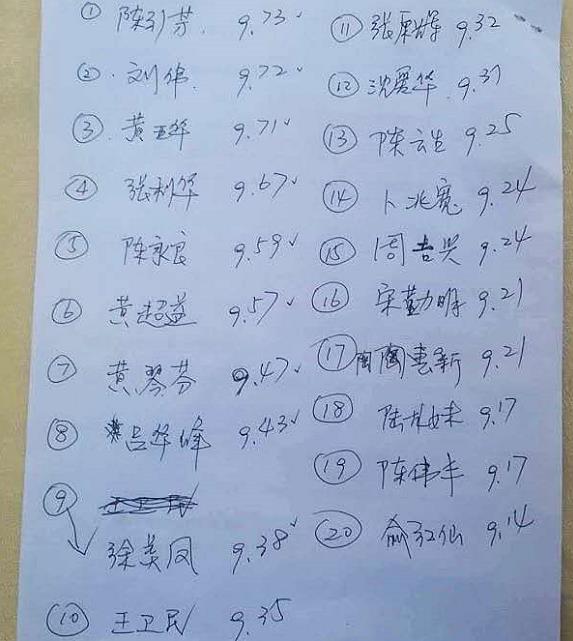 ① 陈引芬. 9.73✓
② 刘伟. 9.72✓
③ 黄亚华 9.71✓
④ 张利华 9.67✓
⑤ 陈永良 9.59✓
⑥ 黄超益 9.57✓
⑦ 黄琴芬 9.47✓
⑧ 吕华峰 9.43✓
⑨
徐美凤 9.38✓
⑩ 王卫民 9.35
⑪ 9.32
⑫ 沈爱华. 9.31
⑬ 陈云生 9.25
⑭ 卜兆宽 9.24
⑮ 周吉兴 9.24
⑯ 宋勤明 9.21
⑰ 惠新 9.21
⑱ 9.17
⑲ 陈伟丰 9.17
⑳ 俞红仙 9.14